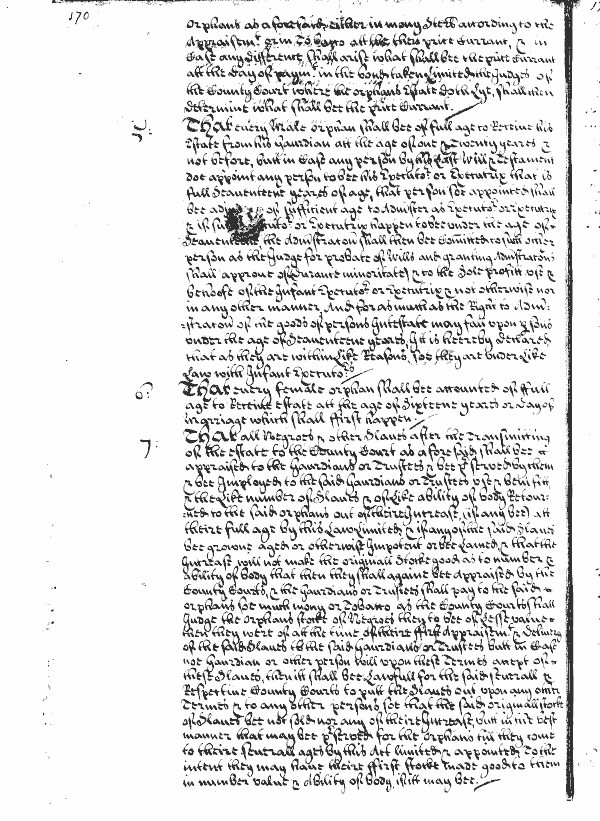 170
Orphans as aforesaid, either in mony Stocke according to the
Appraisemt. or in Tobacco att the then price Currant, & in
Case any difference shall arise what shall bee the price Currant
att the day of paymt. in the bond taken Limited the Judges of
the County Court where the orphans Estate doth Lye, shall then
determine what shall bee the price Currant.
5.
That every Male orphan shall bee of full age to Receive his
Estate from his Guardian att the age of one & Twenty yeares &
not before, butt in Case any person by his Last Will & Testament
doe appoint any person to bee his Executor. or Executrix that is
full Seaventeene yeares of age, that person soe appointed shall
bee of sufficient age to Administer as Executor. or Executrix
& if such Executor. or Executrix happen to bee under the age of
Seaventeene the Administracon shall then bee Comitted to such other
person as the Judge for probate of Wills and granting Administracons
shall approve of durante minoritate, & to the Sole proffitt use &
behoofe of the Infant Executor. or Executrix & not otherwise nor
in any other manner, And for as much as the Right to Admin-
istracon of the goods of persons Intestate may fall upon psons
under the age of Seaventeene yeares, Itt is hereby declared
that as they are within Like Reason, soe they are under Like
Law with Infant Executors.
6.
That every female orphan shall bee accounted of ffull
age to Receive Estate att the age of Sixteene yeares or day of
marriage which shall ffirst happen.
7.
That all Negroes & other Slaves after the Transmitting
of the estate to the County Court as aforesaid shall bee
appraised to the Guardians or Trustees & bee pserved by them
& bee Imployed to the said Guardians or Trustees use & benifitt
& the Like number of Slaves & of Like ability of body Retour-
ned to the said orphans out of theire Increase, (if any bee) att
theire full age by this Law Limited, & if any of the said Slaves
bee growne aged or otherwise Impotent or bee Lamed, & that the
Increase will not make the originall Stocke good as to number &
Ability of body that then they shall againe bee Appraised by the
County Courts, & the Guardians or Trustees shall pay to the said
orphans soe much mony or Tobacco as the County Courts shall
Judge the orphans stocke of Negroes they to bee of Lesse value
then they were of att the time of theire ffirst Appraisemt. & delivery
of the said Slaves to the said Guardians or Trustees butt in Case
noe Guardian or other person will upon these Termes accept of
these Slaves, then itt shall bee Lawfull for the said severall &
Respective County Courts to putt the Slaves out upon any other
Termes & to any other persons soe that the said originall stocke
of Slaves bee not sold nor any of theire Increase, butt in the best
manner that may bee pserved for the orphans till they come
to theire severall ages by this Act limited & appointed, To the
intent they may have theire ffirst stocke made good to them
in number value & Ability of body, if itt may bee.